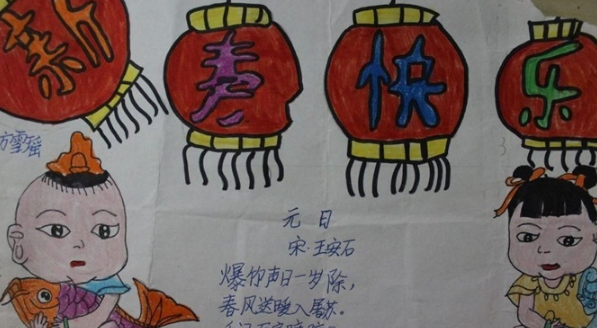 新春快乐
方雪瑶
元日
宋·王安石
爆竹声日一岁除，
春风送暖入屠苏。